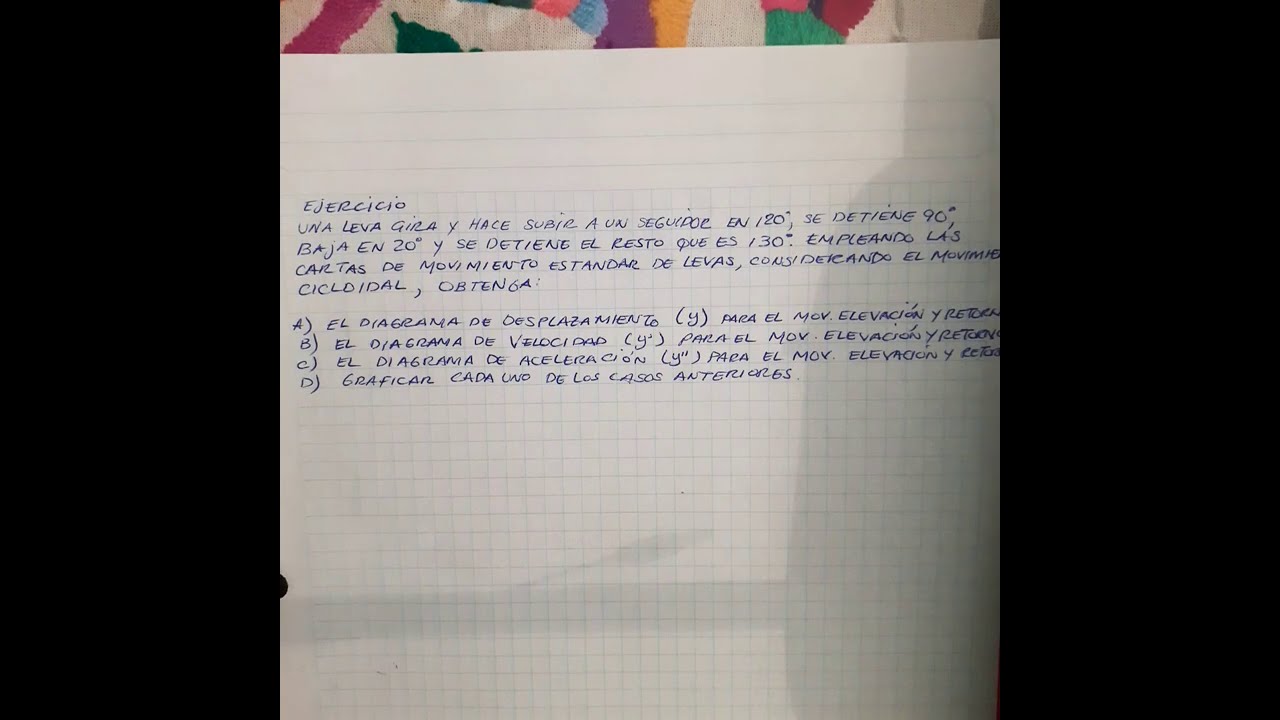 EJERCICIO
UNA LEVA GIRA Y HACE SUBIR A UN SEGUIDOR EN 120°, SE DETIENE 90°,
BAJA EN 20° Y SE DETIENE EL RESTO QUE ES 130°. EMPLEANDO LAS
CARTAS DE MOVIMIENTO ESTANDAR DE LEVAS, CONSIDERANDO EL MOVIMIE
CICLOIDAL, OBTENGA:
A) EL DIAGRAMA DE DESPLAZAMIENTO (y) PARA EL MOV. ELEVACIÓN Y RETORN
B) EL DIAGRAMA DE VELOCIDAD (y') PARA EL MOV. ELEVACIÓN Y RETORNO
C) EL DIAGRAMA DE ACELERACIÓN (y") PARA EL MOV. ELEVACIÓN Y RETOR
D) GRAFICAR CADA UNO DE LOS CASOS ANTERIORES.